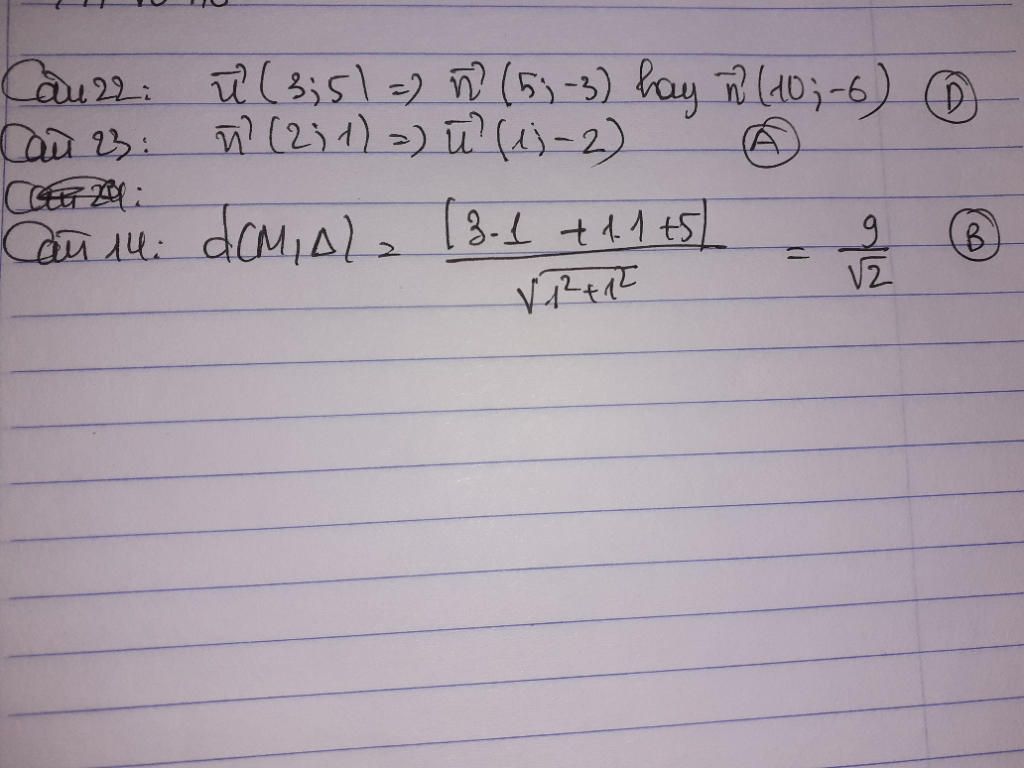 Câu 22: u⃗ (3;5) => n⃗ (5;-3) hay n⃗ (10;-6) D
Câu 23: n⃗ (2;1) => u⃗ (1;-2) A
Câu 14: d(M,Δ) = |3.1 + 1.1 +5| / √1²+1² = 9/√2 B